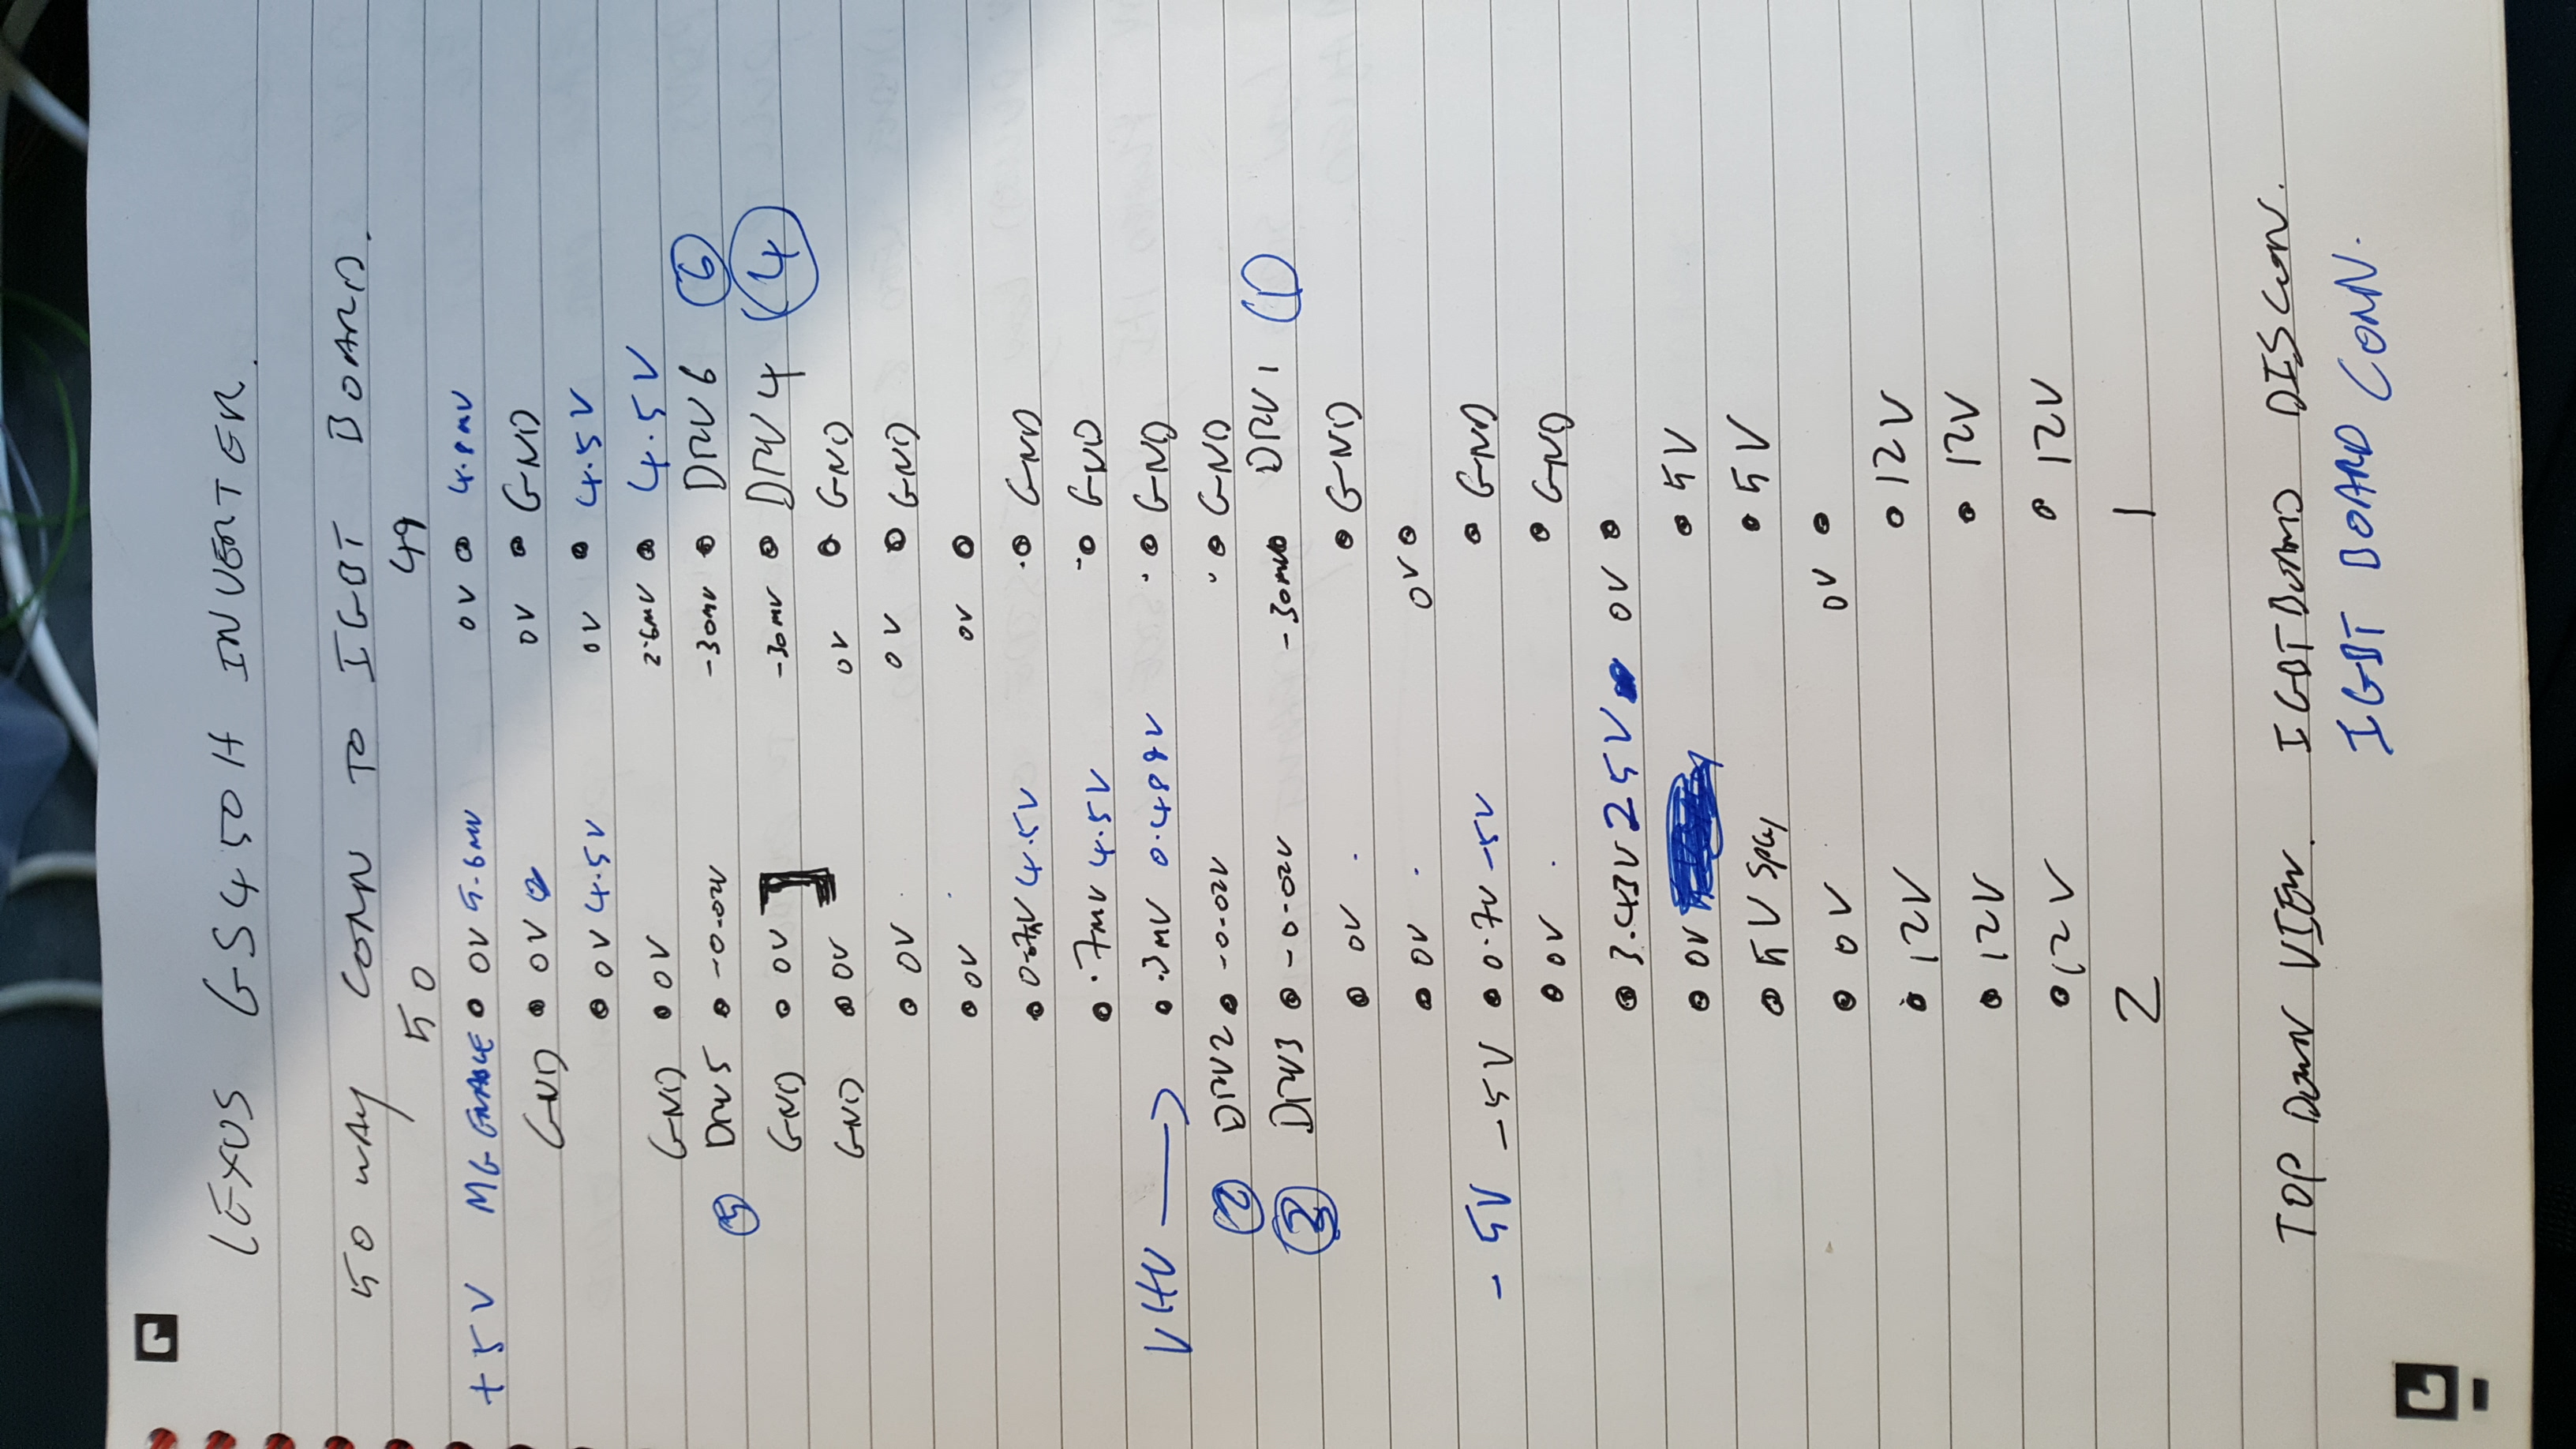 LEXUS GS450H INVERTER.
50 WAY CONN TO IGBT BOARD.
50 49
+5V MG ENABLE • 0V 5.6mV 0V • 4.8mV
GND • 0V 0V • GND
• 0V 4.5V 0V • 4.5V
GND • 0V 2.6mV • 4.5V
5 DRV5 • -0.02V -30mV • DRV6 6
GND • 0V -30mV • DRV4 4
GND • 0V 0V • GND
• 0V 0V • GND
• 0V 0V •
4.5V • GND
• .7mV 4.5V • GND
VHV → • .3mV 0.488V • GND
2 DRV2 • -0.02V • GND
3 DRV3 • -0.02V -30mV • DRV1 1
• 0V • GND
• 0V 0V •
-5V -5V • 0.7V -5V • GND
• 0V • GND
• 3.43V 2.5V 0V •
• 0V • 5V
• 5V Sply • 5V
• 0V 0V •
• 12V • 12V
• 12V • 12V
• 12V • 12V
2 1
TOP DOWN VIEW. IGBT BOARD DISCON.
IGBT BOARD CONN.